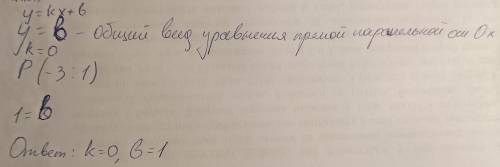 y=kx+b
y=b - Общий вид уравнения прямой паралельной оси Ox
k=0
P(-3:1)
1=b
Ответ: k=0, b=1